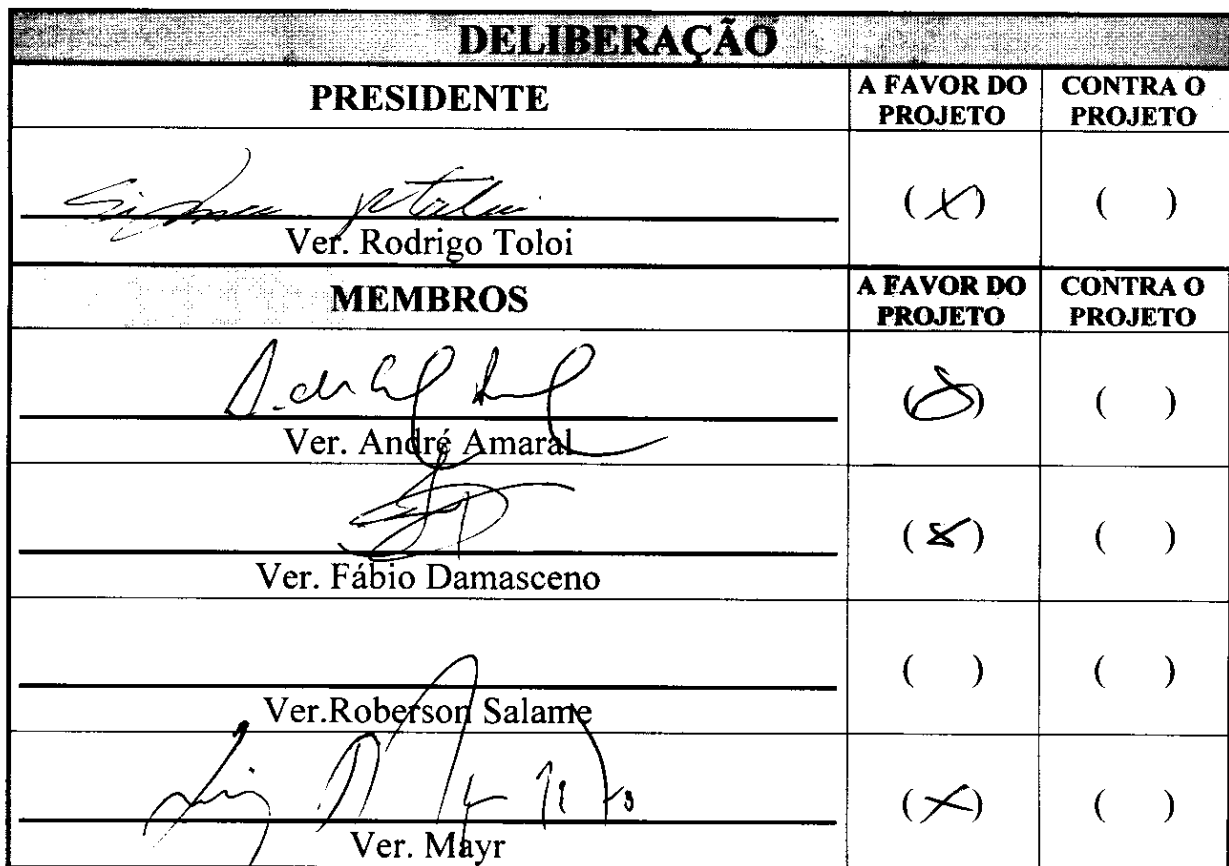 DELIBERAÇÃO
PRESIDENTE A FAVOR DO PROJETO CONTRA O PROJETO
(X) ( )
Ver. Rodrigo Toloi
MEMBROS A FAVOR DO PROJETO CONTRA O PROJETO
(X) ( )
Ver. André Amaral
(X) ( )
Ver. Fábio Damasceno
( ) ( )
Ver.Roberson Salame
(X) ( )
Ver. Mayr